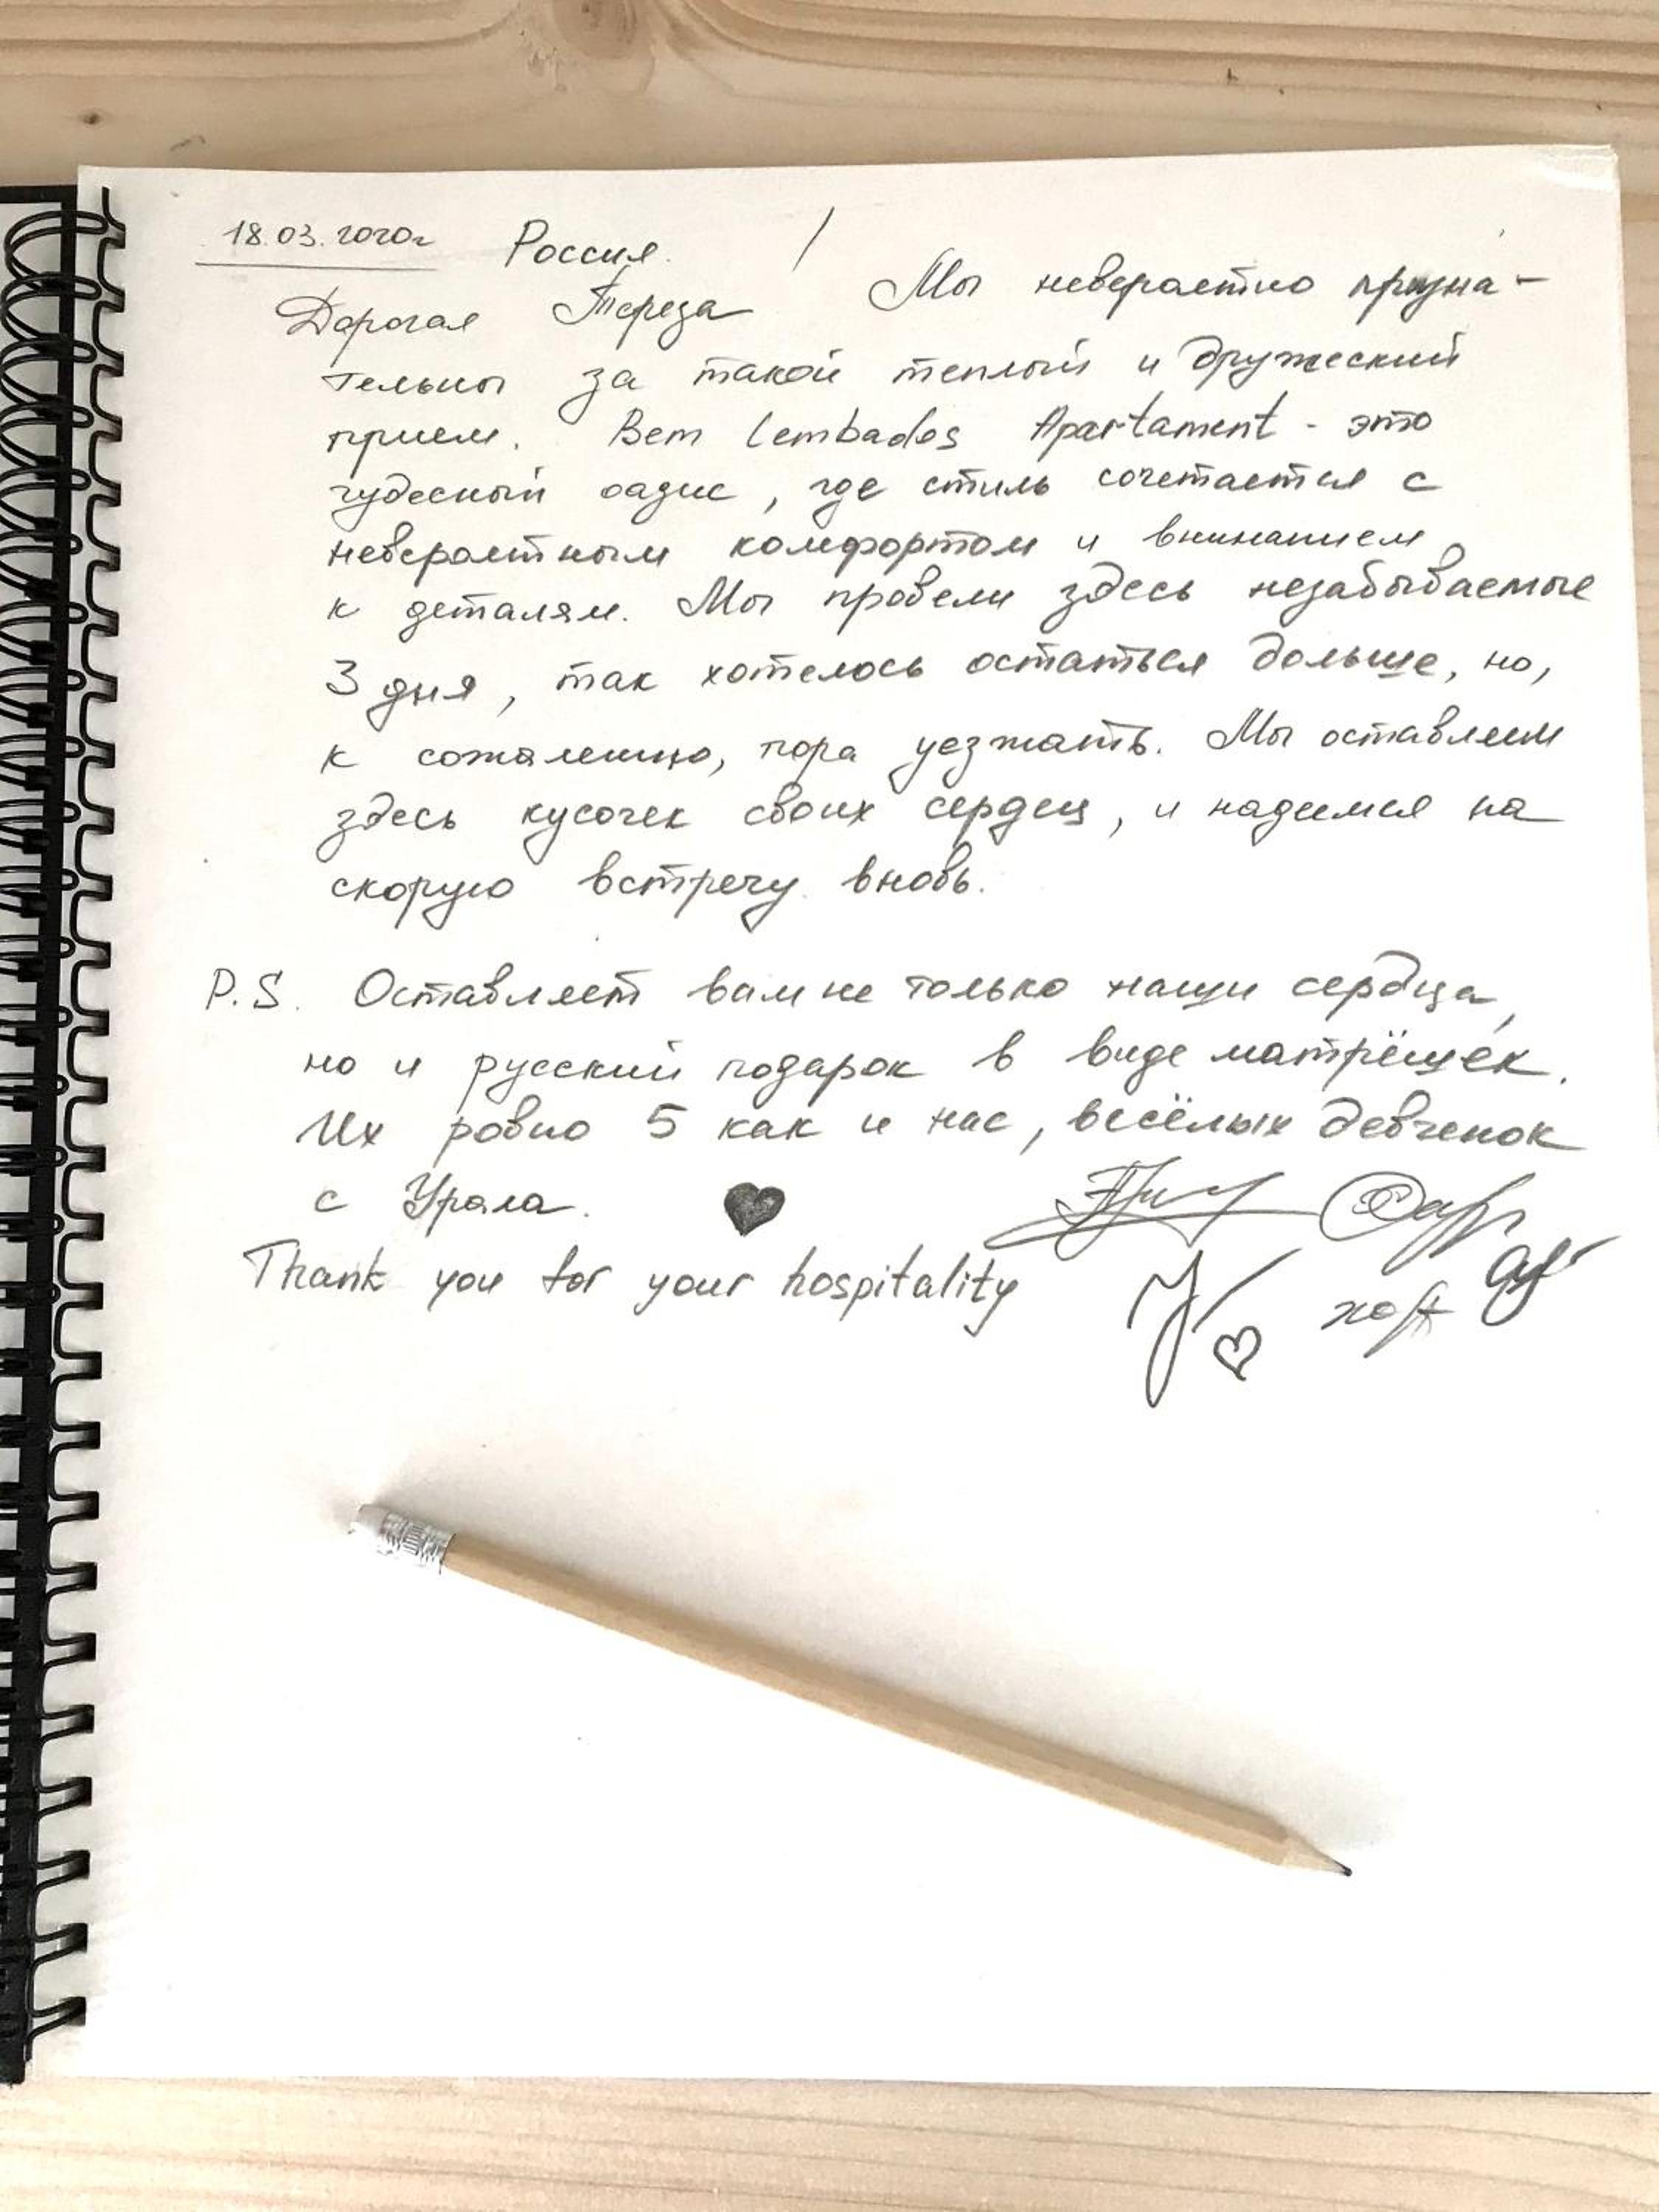 18.03.2020г Россия.
Дорогая Тереза! Мы невероятно призна-
тельны за такой теплый и дружеский
прием. Bem lembados Apartament - это
чудесный оазис, где стиль сочетается с
невероятным комфортом и вниманием
к деталям. Мы провели здесь незабываемые
3 дня, так хотелось остаться дольше, но,
к сожалению, пора уезжать. Мы оставляем
здесь кусочек своих сердец, и надеимся на
скорую встречу вновь.
P.S. Оставляем вам не только наши сердца,
но и русский подарок в виде матрёшек.
Их ровно 5 как и нас, весёлых девченок
с Урала.
Thank you for your hospitality